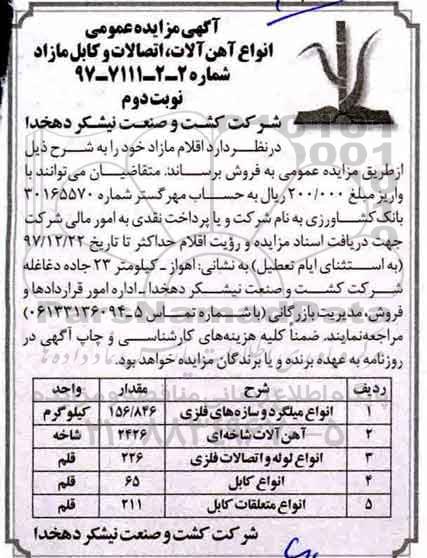 آگهی مزایده عمومی
انواع آهن آلات، اتصالات و کابل مازاد
شماره ۲-۲-۷۱۱۱-۹۷
نوبت دوم
شرکت کشت و صنعت نیشکر دهخدا
در نظر دارد اقلام مازاد خود را به شرح ذیل
از طریق مزایده عمومی به فروش برساند. متقاضیان می‌توانند با
واریز مبلغ ۲۰۰/۰۰۰ ریال به حساب مهرگستر شماره ۳۰۱۶۵۵۷۰
بانک کشاورزی به نام شرکت و یا پرداخت نقدی به امور مالی شرکت
جهت دریافت اسناد مزایده و رؤیت اقلام حداکثر تا تاریخ ۹۷/۱۲/۲۲
(به استثنای ایام تعطیل) به نشانی: اهواز ـ کیلومتر ۲۳ جاده دغاغله
شرکت کشت و صنعت نیشکر دهخدا ـ اداره امور قراردادها و
فروش، مدیریت بازرگانی (با شماره تماس ۵-۰۶۱۳۳۱۳۶۰۹۴)
مراجعه نمایند. ضمناً کلیه هزینه‌های کارشناسی و چاپ آگهی در
روزنامه به عهده برنده و یا برندگان مزایده خواهد بود.
ردیف شرح مقدار واحد
۱ انواع میلگرد و سازه‌های فلزی ۱۵۶/۸۴۶ کیلوگرم
۲ آهن آلات شاخه‌ای ۲۴۲۶ شاخه
۳ انواع لوله و اتصالات فلزی ۲۲۶ قلم
۴ انواع کابل ۶۵ قلم
۵ انواع متعلقات کابل ۲۱۱ قلم
شرکت کشت و صنعت نیشکر دهخدا